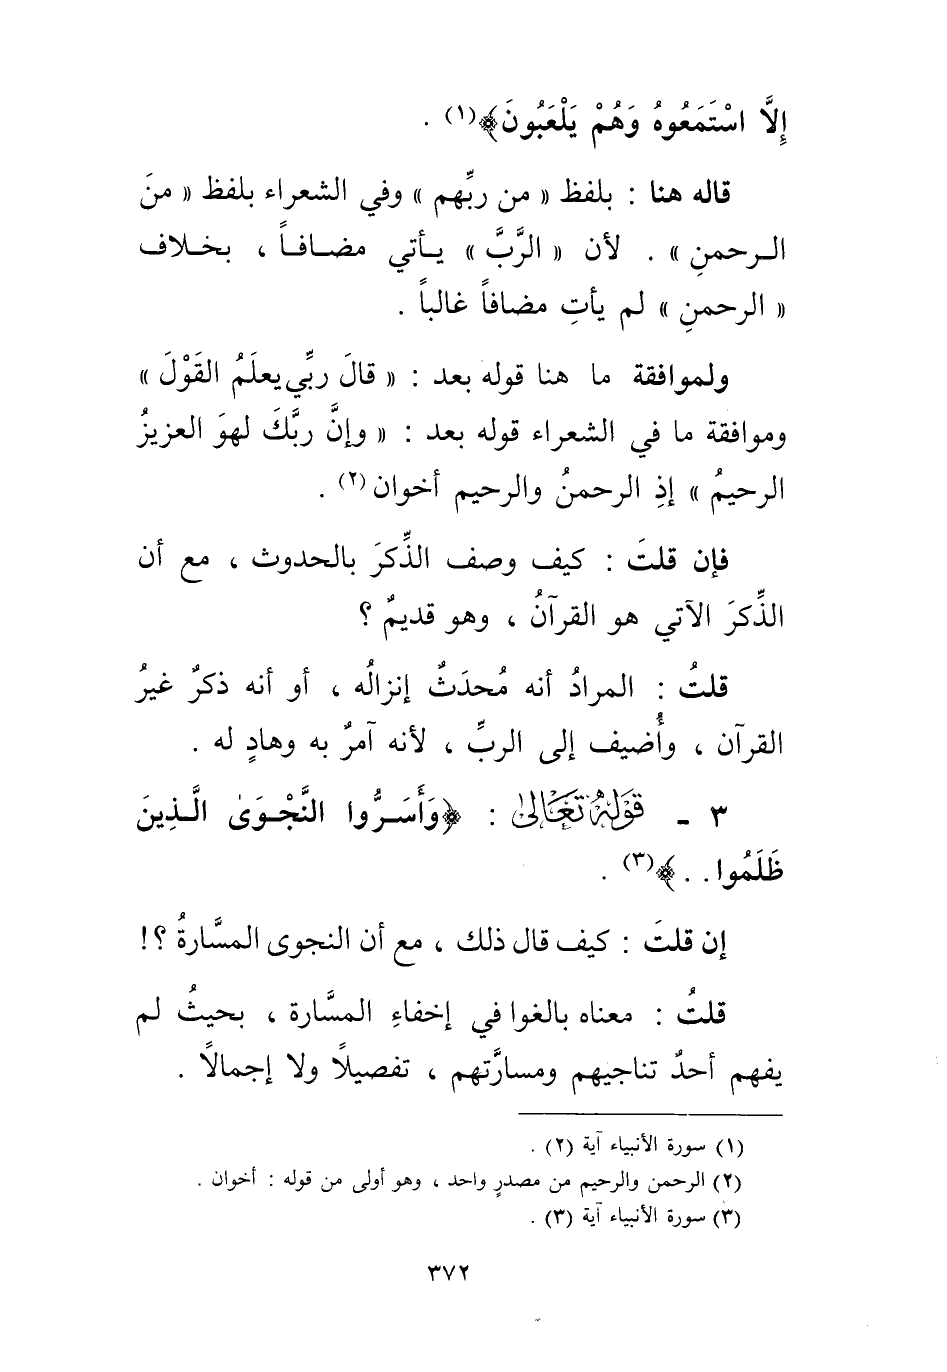 إِلَّا اسْتَمَعُوهُ وَهُمْ يَلْعَبُونَ﴾(١) .
قاله هنا : بلفظ « من ربِّهم » وفي الشعراء بلفظ « منَ
الـرحمنِ » . لأن « الرَّبَّ » يـأتي مضـافـاً ، بخـلاف
« الرحمنِ » لم يأتِ مضافاً غالباً .
ولموافقة ما هنا قوله بعد : « قالَ ربِّي يعلَمُ القَوْلَ »
وموافقة ما في الشعراء قوله بعد : « وإنَّ ربَّكَ لهوَ العزيزُ
الرحيمُ » إذِ الرحمنُ والرحيم أخوان(٢) .
فإن قلتَ : كيف وصف الذِّكرَ بالحدوث ، مع أن
الذِّكرَ الآتي هو القرآنُ ، وهو قديمٌ ؟
قلتُ : المرادُ أنه مُحدَثٌ إنزالُه ، أو أنه ذكرٌ غيرُ
القرآن ، وأُضيف إلى الربِّ ، لأنه آمرٌ به وهادٍ له .
٣ ـ قَوْلُهُ تَعَالىٰ : ﴿وَأَسَـرُّوا النَّجْـوَىٰ الَّـذِينَ
ظَلَمُوا. . ﴾(٣) .
إن قلتَ : كيف قال ذلك ، مع أن النجوى المسَّارةُ ؟!
قلتُ : معناه بالغوا في إخفاءِ المسَّارة ، بحيثُ لم
يفهم أحدٌ تناجيهم ومسارَّتهم ، تفصيلاً ولا إجمالاً .
(١) سورة الأنبياء آية (٢) .
(٢) الرحمن والرحيم من مصدرٍ واحد ، وهو أولى من قوله : أخوان .
(٣) سورة الأنبياء آية (٣) .
٣٧٢